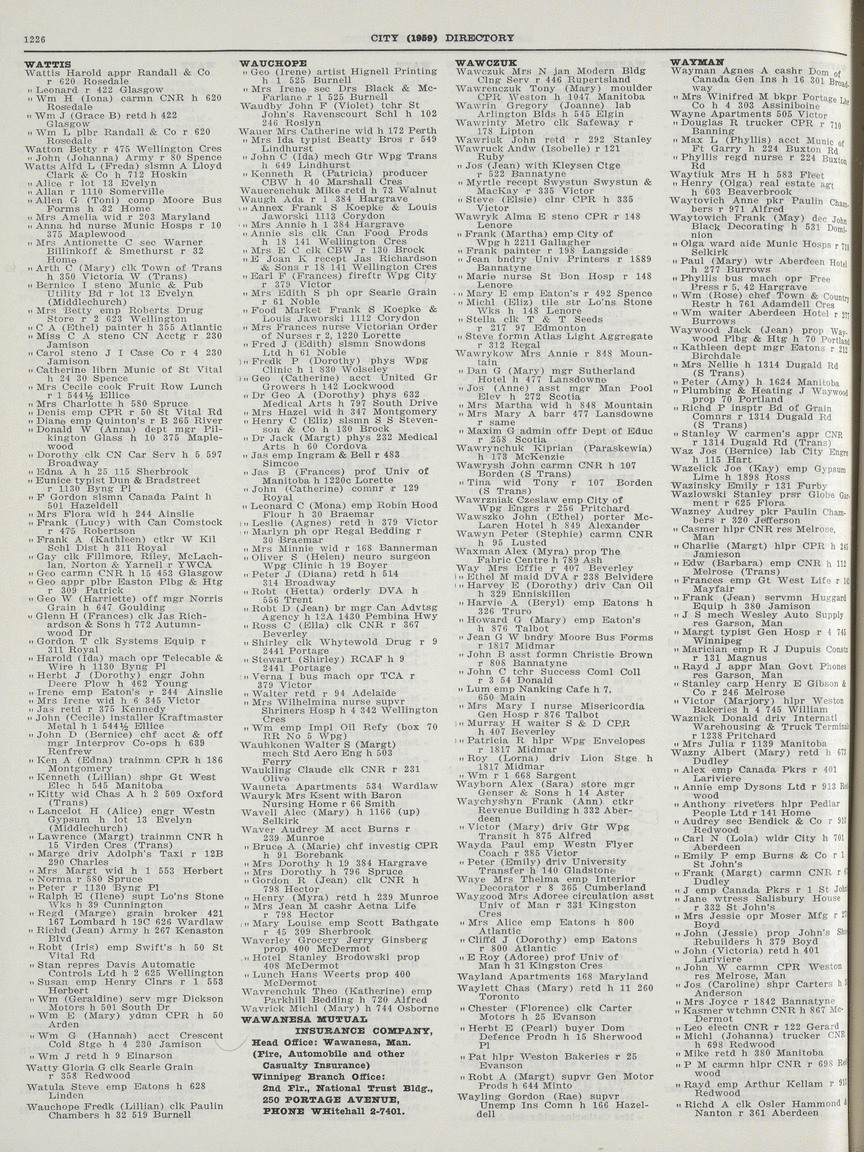 1226
CITY (1959) DIRECTORY
WATTIS
Wattis Harold appr Randall & Co
r 620 Rosedale
" Leonard r 422 Glasgow
" Wm H (Iona) carmn CNR h 620
Rosedale
" Wm J (Grace B) retd h 422
Glasgow
" Wm L plbr Randall & Co r 620
Rosedale
Watton Betty r 475 Wellington Cres
" John (Johanna) Army r 80 Spence
Watts Alfd L (Freda) slsmn A Lloyd
Clark & Co h 712 Hoskin
" Alice r lot 13 Evelyn
" Allan r 1110 Somerville
" Allen G (Toni) comp Moore Bus
Forms h 32 Home
" Mrs Amelia wid r 203 Maryland
" Anna hd nurse Munic Hosps r 10
375 Maplewood
" Mrs Antionette C sec Warner
Billinkoff & Smethurst r 32
Home
" Arth C (Mary) clk Town of Trans
h 359 Victoria W (Trans)
" Bernice I steno Munic & Pub
Utility Bd r lot 13 Evelyn
(Middlechurch)
" Mrs Betty emp Roberts Drug
Store r 2 623 Wellington
" C A (Ethel) painter h 355 Atlantic
" Miss C A steno CN Acctg r 230
Jamison
" Carol steno J I Case Co r 4 230
Jamison
" Catherine librn Munic of St Vital
h 24 30 Spence
" Mrs Cecile cook Fruit Row Lunch
r 1 544½ Ellice
" Mrs Charlotte r 580 Spruce
" Denis emp CPR r 50 St Vital Rd
" Diana emp Quinton's r B 265 River
" Donald W (Anna) dept mgr Pil-
kington Glass h 10 375 Maple-
wood
" Dorothy clk CN Car Serv h 5 597
Broadway
" Edna A h 25 115 Sherbrook
" Eunice typist Dun & Bradstreet
r 1130 Byng Pl
" F Gordon slsmn Canada Paint h
501 Hazeldell
" Mrs Flora wid h 244 Ainslie
" Frank (Lucy) with Can Comstock
r 475 Robertson
" Frank A (Kathleen) ctkr W Kil
Schl Dist h 211 Royal
" Gay clk Fillmore, Riley, McLach-
lan, Norton & Yarnell r YWCA
" Geo carmn CNR h 15 453 Glasgow
" Geo appr plbr Easton Plbg & Htg
r 309 Patrick
" Geo W (Harriette) off mgr Norris
Grain h 647 Goulding
" Glenn H (Frances) clk Jas Rich-
ardson & Sons h 772 Autumn-
wood Dr
" Gordon T clk Systems Equip r
311 Royal
" Harold (Ida) mach opr Telecable &
Wire h 1130 Byng Pl
" Herbt J (Dorothy) engr John
Deere Plow h 462 Young
" Irene emp Eaton's r 244 Ainslie
" Mrs Irene wid h 6 345 Victor
" Jas retd r 375 Kennedy
" John (Cecile) installer Kraftmaster
Metal h 1 544½ Ellice
" John D (Bernice) chf acct & off
mgr Interprov Co-ops h 639
Renfrew
" Ken A (Edna) trainmn CPR h 186
Montgomery
" Kenneth (Lillian) shpr Gt West
Elec h 545 Manitoba
" Kitty wid Chas A h 2 509 Oxford
(Trans)
" Lancelot H (Alice) engr Westn
Gypsum h lot 13 Evelyn
(Middlechurch)
" Lawrence (Margt) trainmn CNR h
15 Virden Cres (Trans)
" Marge driv Adolph's Taxi r 12B
290 Charles
" Mrs Margt wid h 1 553 Herbert
" Norma r 580 Spruce
" Peter r 1130 Byng Pl
" Ralph E (Ilene) supt Lo'ns Stone
Wks h 39 Cunnington
" Regd (Marge) grain broker 421
167 Lombard h 19C 626 Wardlaw
" Richd (Jean) Army h 267 Kenaston
Blvd
" Robt (Iris) emp Swift's h 50 St
Vital Rd
" Stan repres Davis Automatic
Controls Ltd h 2 625 Wellington
" Susan emp Henry Clnrs r 1 553
Herbert
" Wm (Geraldine) serv mgr Dickson
Motors h 501 South Dr
" Wm E (Mary) ydmn CPR h 50
Arden
" Wm G (Hannah) acct Crescent
Cold Stge h 4 230 Jamison
" Wm J retd h 9 Einarson
Watty Gloria G clk Searle Grain
r 358 Redwood
Watula Steve emp Eatons h 628
Linden
Wauchope Fredk (Lillian) clk Paulin
Chambers h 32 519 Burnell
WAUCHOPE
" Geo (Irene) artist Hignell Printing
h 1 525 Burnell
" Mrs Irene sec Drs Black & Mc-
Farlane r 1 525 Burnell
Waudby John F (Violet) tchr St
John's Ravenscourt Schl h 102
246 Roslyn
Wauer Mrs Catherine wid h 172 Perth
" Mrs Ida typist Beatty Bros r 549
Lindhurst
" John C (Ida) mech Gtr Wpg Trans
h 649 Lindhurst
" Kenneth R (Patricia) producer
CBW h 40 Marshall Cres
Wauerenchuk Mike retd h 73 Walnut
Waugh Ada r 1 384 Hargrave
" Annex Frank S Koepke & Louis
Jaworski 1113 Corydon
" Mrs Annie h 1 384 Hargrave
" Annie sls clk Can Food Prods
h 18 141 Wellington Cres
" Mrs E C clk CBW r 130 Brock
" E Joan K recept Jas Richardson
& Sons r 18 141 Wellington Cres
" Earl F (Frances) fireftr Wpg City
r 379 Victor
" Mrs Edith S ph opr Searle Grain
r 61 Noble
" Food Market Frank S Koepke &
Louis Jaworski 1112 Corydon
" Mrs Frances nurse Victorian Order
of Nurses r 2, 1220 Lorette
" Fred J (Edith) slsmn Snowdons
Ltd h 61 Noble
" Fredk P (Dorothy) phys Wpg
Clinic h 1 830 Wolseley
" Geo (Catherine) acct United Gr
Growers h 142 Lockwood
" Dr Geo A (Dorothy) phys 632
Medical Arts h 797 South Drive
" Mrs Hazel wid h 347 Montgomery
" Henry C (Eliz) slsmn S S Steven-
son & Co h 130 Brock
" Dr Jack (Margt) phys 232 Medical
Arts h 60 Cordova
" Jas emp Ingram & Bell r 483
Simcoe
" Jas B (Frances) prof Univ of
Manitoba h 1220c Lorette
" John (Catherine) comnr r 129
Royal
" Leonard C (Mona) emp Robin Hood
Flour h 30 Braemar
" Leslie (Agnes) retd h 379 Victor
" Marlyn ph opr Regal Bedding r
30 Braemar
" Mrs Minnie wid r 168 Bannerman
" Oliver S (Helen) neuro surgeon
Wpg Clinic h 19 Boyer
" Peter J (Diana) retd h 514
314 Broadway
" Robt (Hetta) orderly DVA h
556 Trent
" Robt D (Jean) br mgr Can Advtsg
Agency h 12A 1430 Pembina Hwy
" Ross C (Ella) clk CNR r 367
Beverley
" Shirley clk Whytewold Drug r 9
2441 Portage
" Stewart (Shirley) RCAF h 9
2441 Portage
" Verna I bus mach opr TCA r
379 Victor
" Walter retd r 94 Adelaide
" Mrs Wilhelmina nurse supvr
Shriners Hosp h 4 342 Wellington
Cres
" Wm emp Impl Oil Refy (box 70
RR No 5 Wpg)
Wauhkonen Walter S (Margt)
mech Std Aero Eng h 503
Ferry
Waukling Claude clk CNR r 231
Olive
Wauneta Apartments 534 Wardlaw
Wauryk Mrs Ksent with Baron
Nursing Home r 66 Smith
Wavell Alec (Mary) h 1166 (up)
Selkirk
Waver Audrey M acct Burns r
239 Munroe
" Bruce A (Marie) chf investig CPR
h 91 Borebank
" Mrs Dorothy h 19 384 Hargrave
" Mrs Dorothy h 796 Spruce
" Gordon R (Jean) clk CNR h
798 Hector
" Henry (Myra) retd h 239 Munroe
" Mrs Jean M cashr Aetna Life
r 798 Hector
" Mary Louise emp Scott Bathgate
r 45 309 Sherbrook
Waverley Grocery Jerry Ginsberg
prop. 400 McDermot
" Hotel Stanley Brodowski prop
408 McDermot
" Lunch Hans Weerts prop 400
McDermot
Wavrenchuk Theo (Katherine) emp
Parkhill Bedding h 720 Alfred
Wavrick Michl (Mary) h 744 Osborne
WAWANESA MUTUAL
INSURANCE COMPANY,
Head Office: Wawanesa, Man.
(Fire, Automobile and other
Casualty Insurance)
Winnipeg Branch Office:
2nd Flr., National Trust Bldg.,
250 PORTAGE AVENUE,
PHONE WHitehall 2-7401.
WAWCZUK
Wawczuk Mrs N jan Modern Bldg
Clng Serv r 446 Rupertsland
Wawrenczuk Tony (Mary) moulder
CPR Weston h 1047 Manitoba
Wawrin Gregory (Joanne) lab
Arlington Blds h 545 Elgin
Wawrinty Metro clk Safeway r
178 Lipton
Wawriuk John retd r 292 Stanley
Wawruck Andw (Isobelle) r 121
Ruby
" Jos (Jean) with Kleysen Ctge
r 522 Bannatyne
" Myrtle recept Swystun Swystun &
MacKay r 335 Victor
" Steve (Elsie) clnr CPR h 335
Victor
Wawryk Alma E steno CPR r 148
Lenore
" Frank (Martha) emp City of
Wpg h 2211 Gallagher
" Frank painter r 198 Langside
" Jean bndry Univ Printers r 1889
Bannatyne
" Marie nurse St Bon Hosp r 148
Lenore
" Mary E emp Eaton's r 492 Spence
" Michl (Eliz) tile str Lo'ns Stone
Wks h 148 Lenore
" Stella clk T & T Seeds
r 217 97 Edmonton
" Steve formn Atlas Light Aggregate
r 312 Regal
Wawrykow Mrs Annie r 848 Moun-
tain
" Dan G (Mary) mgr Sutherland
Hotel h 477 Lansdowne
" Jos (Anne) asst mgr Man Pool
Elev h 272 Scotia
" Mrs Martha wid h 848 Mountain
" Mrs Mary A barr 477 Lansdowne
r same
" Maxim G admin offr Dept of Educ
r 258 Scotia
Wawrynchuk Kiprian (Paraskewia)
h 173 McKenzie
Wawrysh John carmn CNR h 107
Borden (S Trans)
" Tina wid Tony r 107 Borden
(S Trans)
Wawrzniak Czeslaw emp City of
Wpg Engrs r 256 Pritchard
Wawszko John (Ethel) porter Mc-
Laren Hotel h 849 Alexander
Wawyn Peter (Stephie) carmn CNR
h 95 Lusted
Waxman Alex (Myra) prop The
Fabric Centre h 789 Ash
Way Mrs Effie r 407 Beverley
" Ethel M maid DVA r 238 Belvidere
" Harvey E (Dorothy) driv Can Oil
h 329 Enniskillen
" Harvie A (Beryl) emp Eatons h
326 Truro
" Howard G (Mary) emp Eaton's
h 876 Talbot
" Jean G W bndry Moore Bus Forms
r 1817 Midmar
" John B asst formn Christie Brown
r 808 Bannatyne
" John C tchr Success Coml Coll
r 3 54 Donald
" Lum emp Nanking Cafe h 7,
650 Main
" Mrs Mary I nurse Misericordia
Gen Hosp r 876 Talbot
" Murray H waiter S & D CPR
h 407 Beverley
" Patricia R hlpr Wpg Envelopes
r 1817 Midmar
" Roy (Lorna) driv Lion Stge h
1817 Midmar
" Wm r 1 668 Sargent
Wayborn Alex (Sara) store mgr
Genser & Sons h 14 Aster
Waychyshyn Frank (Ann) ctkr
Revenue Building h 332 Aber-
deen
" Victor (Mary) driv Gtr Wpg
Transit h 875 Alfred
Wayda Paul emp Westn Flyer
Coach r 385 Victor
" Peter (Emily) driv University
Transfer h 140 Gladstone
Waye Mrs Thelma emp Interior
Decorator r 8 365 Cumberland
Waygood Mrs Adoree circulation asst
Univ of Man r 331 Kingston
Cres
" Mrs Alice emp Eatons h 800
Atlantic
" Cliffd J (Dorothy) emp Eatons
r 800 Atlantic
" E Roy (Adoree) prof Univ of
Man h 31 Kingston Cres
Wayland Apartments 168 Maryland
Waylett Chas (Mary) retd h 11 260
Toronto
" Chester (Florence) clk Carter
Motors h 25 Evanson
" Herbt E (Pearl) buyer Dom
Defence Prodn h 15 Sherwood
Pl
" Pat hlpr Weston Bakeries r 25
Evanson
" Robt A (Margt) supvr Gen Motor
Prods h 644 Minto
Wayling Gordon (Rae) supvr
Unemp Ins Comn h 166 Hazel-
dell
WAYMAN
Wayman Agnes A cashr Dom of
Canada Gen Ins h 16 301 Broad-
way
" Mrs Winifred M bkpr Portage
Co h 4 303 Assiniboine
Wayne Apartments 505 Victor
" Douglas R trucker CPR r 710
Banning
" Max L (Phyllis) acct Munic of
Ft Garry h 224 Buxton Rd
" Phyllis regd nurse r 224 Buxton
Rd
Waytiuk Mrs H h 583 Fleet
" Henry (Olga) real estate agt
h 603 Beaverbrook
Waytovich Anne pkr Paulin Cham-
bers r 971 Alfred
Waytowich Frank (May) dec John
Black Decorating h 531 Domi-
nion
" Olga ward aide Munic Hosps r
Selkirk
" Paul (Mary) wtr Aberdeen Hotel
h 277 Burrows
" Phyllis bus mach opr Free
Press r 5, 42 Hargrave
" Wm (Rose) chef Town & Country
Restr h 761 Adamdell Cres
" Wm waiter Aberdeen Hotel r 277
Burrows
Waywood Jack (Jean) prop Way-
wood Plbg & Htg h 70 Portland
" Kathleen dept mgr Eatons r 212
Birchdale
" Mrs Nellie h 1314 Dugald Rd
(S Trans)
" Peter (Amy) h 1624 Manitoba
" Plumbing & Heating J Waywood
prop 70 Portland
" Richd P insptr Bd of Grain
Comnrs r 1314 Dugald Rd
(S Trans)
" Stanley W carmen's appr CNR
r 1314 Dugald Rd (S Trans)
Waz Jos (Bernice) lab City Engrs
h 115 Hart
Wazelick Joe (Kay) emp Gypsum
Lime h 1898 Ross
Wazinsky Emily r 131 Furby
Wazlowski Stanley prsr Globe Gar-
ment r 625 Flora
Wazney Audrey pkr Paulin Cham-
bers r 320 Jefferson
" Casmer hlpr CNR res Melrose,
Man
" Charlie (Margt) hlpr CPR h
Jamieson
" Edw (Barbara) emp CNR h 112
Melrose (Trans)
" Frances emp Gt West Life r
Mayfair
" Frank (Jean) servmn Huggard
Equip h 380 Jamison
" J S mech Wesley Auto Supply
res Garson, Man
" Margt typist Gen Hosp r 4 745
Winnipeg
" Marician emp R J Dupuis Constr
r 131 Magnus
" Rayd J appr Man Govt Phones
res Garson, Man
" Stanley carp Henry E Gibson &
Co r 246 Melrose
" Victor (Marjory) hlpr Weston
Bakeries h 4 745 William
Waznick Donald driv Internatl
Warehousing & Truck Terminal
r 1238 Pritchard
" Mrs Julia r 1139 Manitoba
Wazny Albert (Mary) retd h
Dudley
" Alex emp Canada Pkrs r 401
Lariviere
" Annie emp Dysons Ltd r 913
" Anthony riveters hlpr Pedlar
People Ltd r 141 Home
" Audrey sec Bendick & Co r
Redwood
" Carl N (Lola) wldr City h 701
Aberdeen
" Emily P emp Burns & Co r 1
St John's
" Frank (Margt) carmn CNR r
Dudley
" J emp Canada Pkrs r 1 St
" Jane wtress Salisbury House
r 332 St John's
" Mrs Jessie opr Moser Mfg r
Boyd
" John (Jessie) prop John's
Rebuilders h 379 Boyd
" John (Victoria) retd h 401
Lariviere
" John W carmn CPR Weston
res Melrose, Man
" Jos (Caroline) shpr Carters h
Anderson
" Mrs Joyce r 1842 Bannatyne
" Kasmer wtchmn CNR h 867 Mc-
Dermot
" Leo electn CNR r 122 Gerard
" Michl (Johanna) trucker CNR
h 698 Redwood
" Mike retd h 380 Manitoba
" P M carmn hlpr CNR r 698 Red-
wood
" Rayd emp Arthur Kellam r
Redwood
" Richd A clk Osler Hammond &
Nanton r 361 Aberdeen